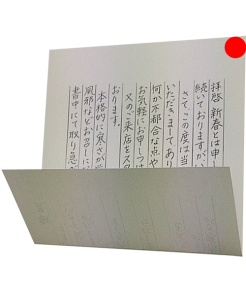 拝啓 新春とは申し
続いておりますが、い
さて、この度は当
いただきましてあり
何か不都合な点や
お気軽にお申しつけ
又のご来店をス
おります。
本格的に寒さが
風邪などお召しに
書中にて取り急